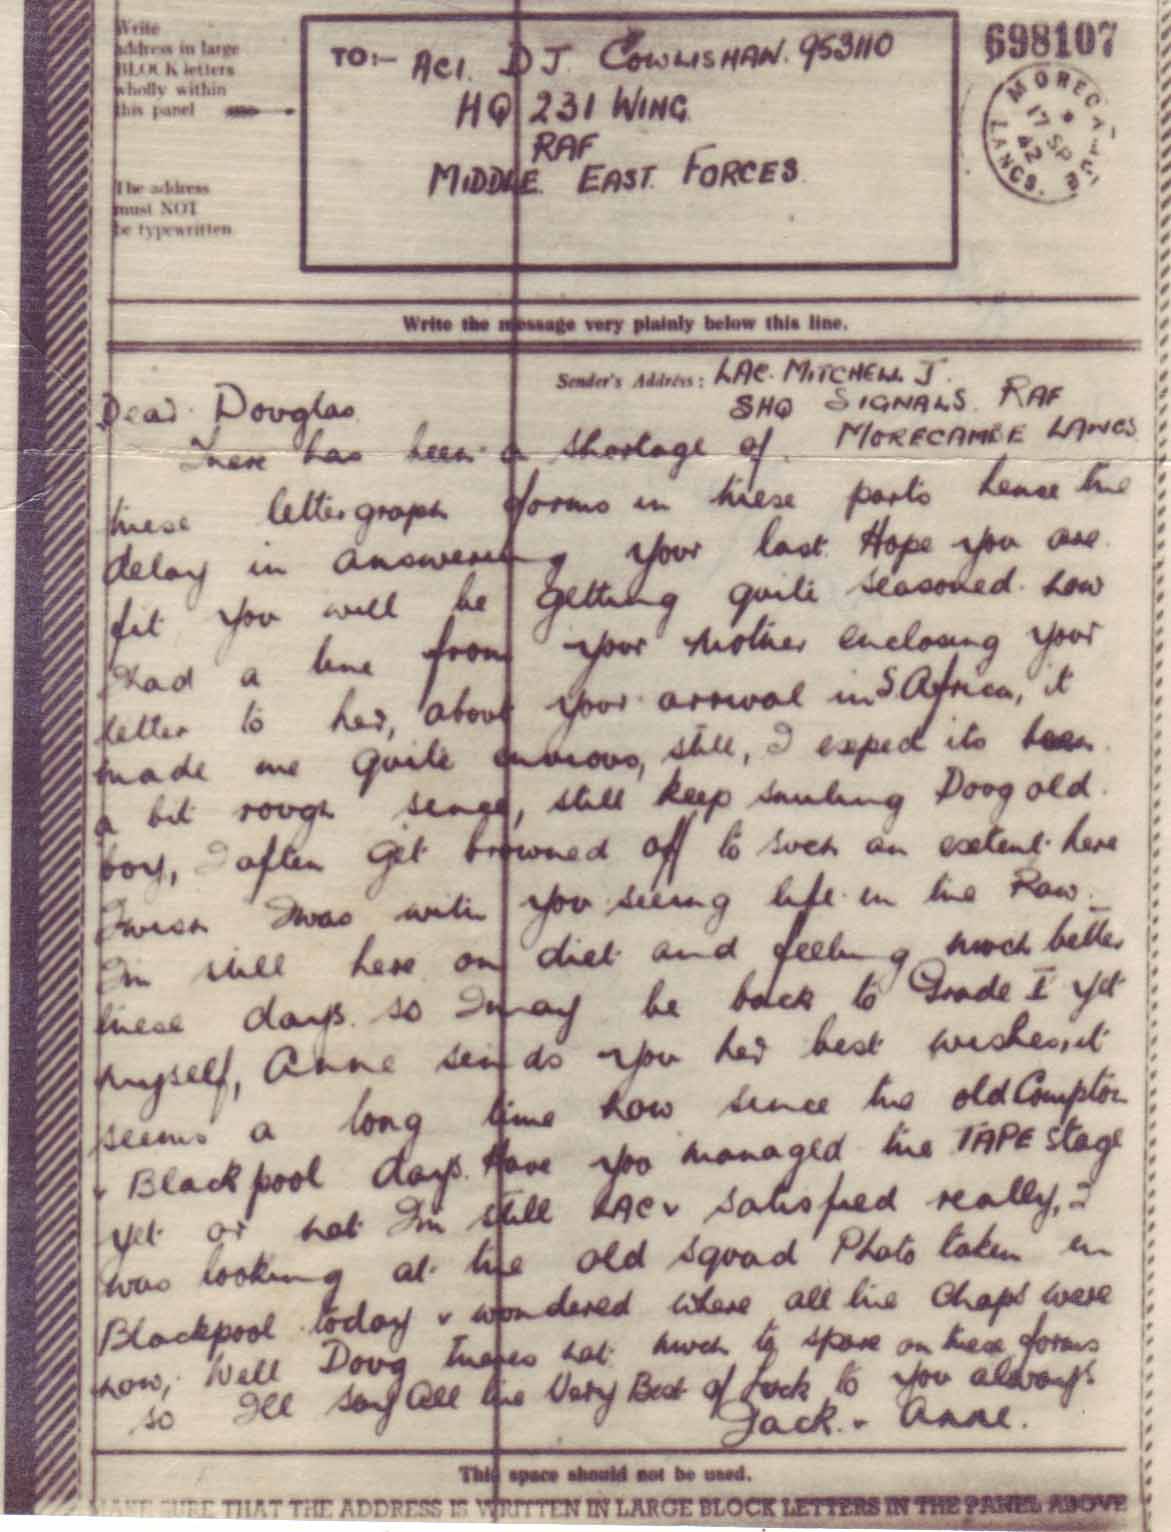 Write
address in large
BLOCK letters
wholly within
this panel
The address
must NOT
be typewritten.
TO:- AC1. D J. COWLISHAW. 953110
HQ 231 WING
RAF
MIDDLE EAST FORCES
698107
MORECAMBE
17 SP
42
LANCS.
Write the message very plainly below this line.
Sender's Address: LAC. MITCHELL J.
SHQ SIGNALS RAF
MORECAMBE LANCS
Dear Douglas
There has been a shortage of
these lettergraph forms in these parts hence the
delay in answering your last. Hope you are
fit you will be getting quite seasoned now
Had a line from your Mother enclosing your
letter to her, about your arrival in S Africa, it
made me quite envious, still, I expect its been
a bit rough since, still keep smiling Doug old
boy, I often get browned off to such an extent here
I wish I was with you seeing life in the Raw.
Im still here on diet and feeling much better
these days. so I may be back to Grade I yet
myself, Anne sends you her best wishes, it
seems a long time now since the old Compton
& Blackpool days. Have you managed the TAPE stage
yet or not Im still LAC & satisfied really, I
was looking at the old squad Photo taken in
Blackpool today & wondered where all the chaps were
now, Well Doug theres not much to spare on these forms
so Ill say All the Very Best of Luck to you always
Jack. & Anne.
This space should not be used.
MAKE SURE THAT THE ADDRESS IS WRITTEN IN LARGE BLOCK LETTERS IN THE PANEL ABOVE